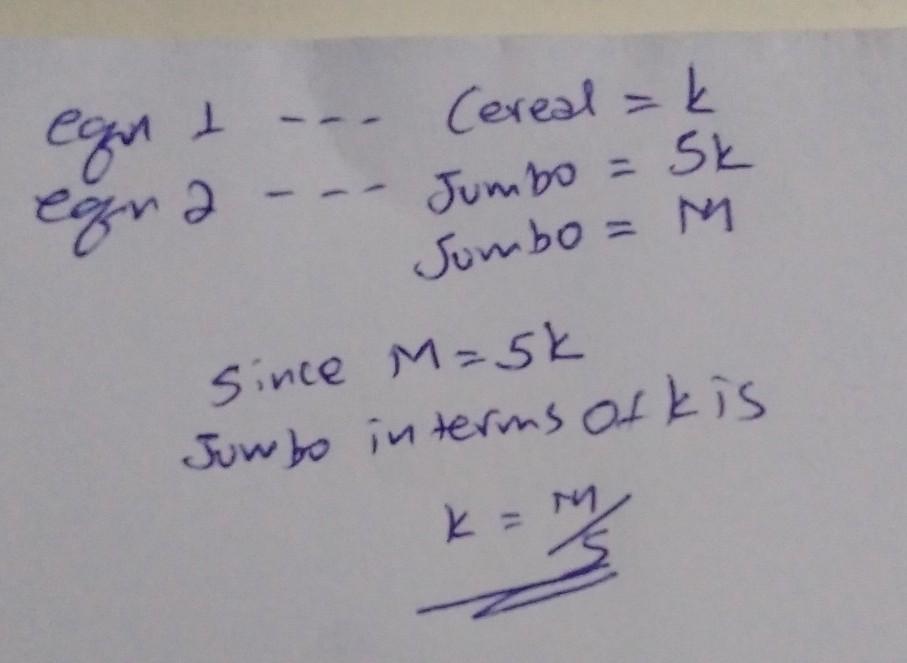 eqn 1 --- Cereal = k
eqn 2 --- Jumbo = 5k
Jumbo = M
Since M = 5k
Jumbo in terms of k is
k = M/5